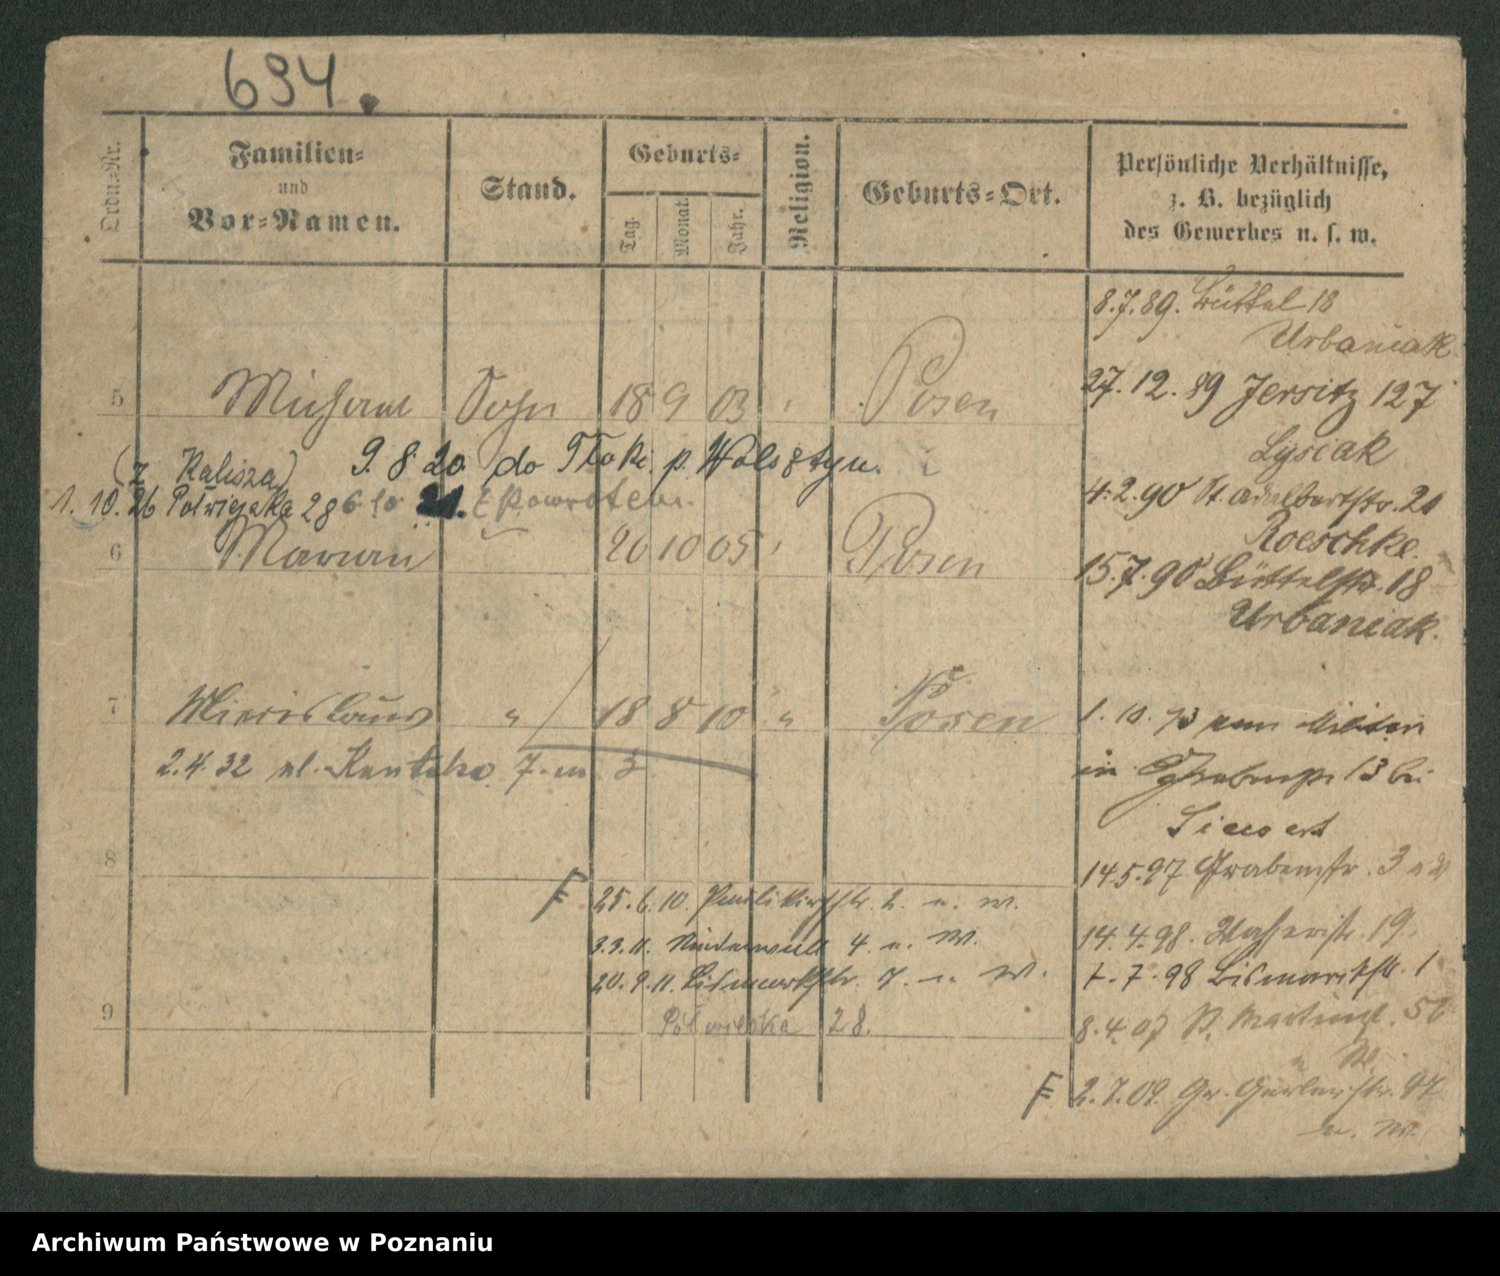 694.
Ordn.-Nr.
Familien-
und
Vor-Namen.
Stand.
Geburts-
Tag.
Monat.
Jahr.
Religion.
Geburts-Ort.
Persönliche Verhältnisse,
z. B. bezüglich
des Gewerbes u. s. w.
8.7.89. Büttel 18
Urbaniak
27.12.89 Jersitz 127
Lysiak
4.2.90 St. Adalbertstr. 21
Roeschke.
15.7.90 Büttelstr. 18
Urbaniak.
1.10.93 zum Militär
in Grabenstr 13 bei
14.5.97 Grabenstr. 3 u W
14.4.98. 19.
7.7.98 Bismarckstr. 1
8.4.07 St. Martinstr. 52
W
F 2.7.09. Gr. Gerberstr. 47
u. W.
5 Michael Sohn 18 9 03 Posen
(z Kalisza) 9.8.20 do Tłoki p. Wolsztyn.
1.10.26 Półwiejska 28 6.10 21. z powrotem.
6 Marian 20 10 05 Posen
7 Miecislaus " 18 8 10 " Posen
2.4.32 ul. 7 m 3
8
F 25.6.10. Paulikirchstr. 2. u. W.
3.3.11. Niederwall 4. u. W.
20.9.11. Bismarckstr. 7. u. W.
9 Półwiejska 28.
Archiwum Państwowe w Poznaniu